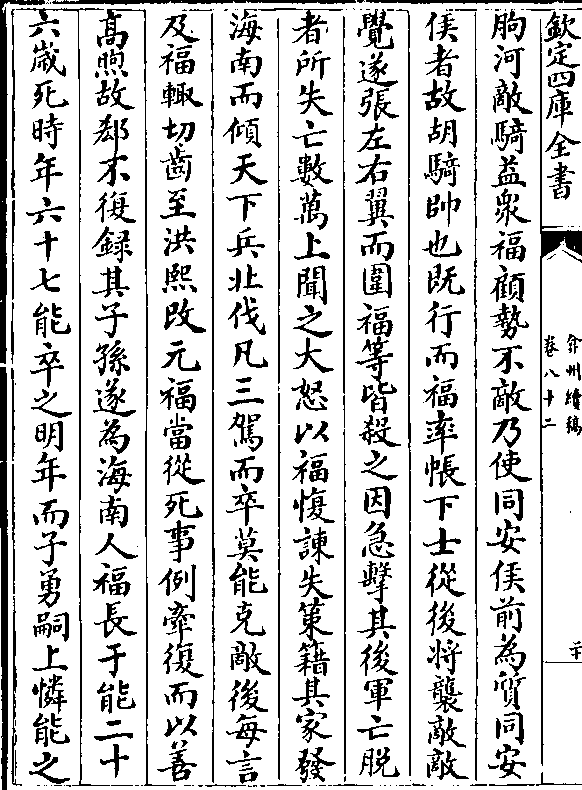 欽定四庫全書
弇州續稿
卷八十二
二十
朐河敵騎益衆福顧勢不敵乃使同安侯前為質同安
侯者故胡騎帥也既行而福率帳下士從後將襲敵敵
覺遂張左右翼而圍福等皆殺之因急擊其後軍亡脱
者所失亡數萬上聞之大怒以福愎諫失策籍其家發
海南而傾天下兵北伐凡三駕而卒莫能克敵後每言
及福輙切齒至洪熙改元福當從死事例牽復而以善
髙煦故郄不復録其子孫遂為海南人福長于能二十
六歲死時年六十七能卒之明年而子勇嗣上憐能之